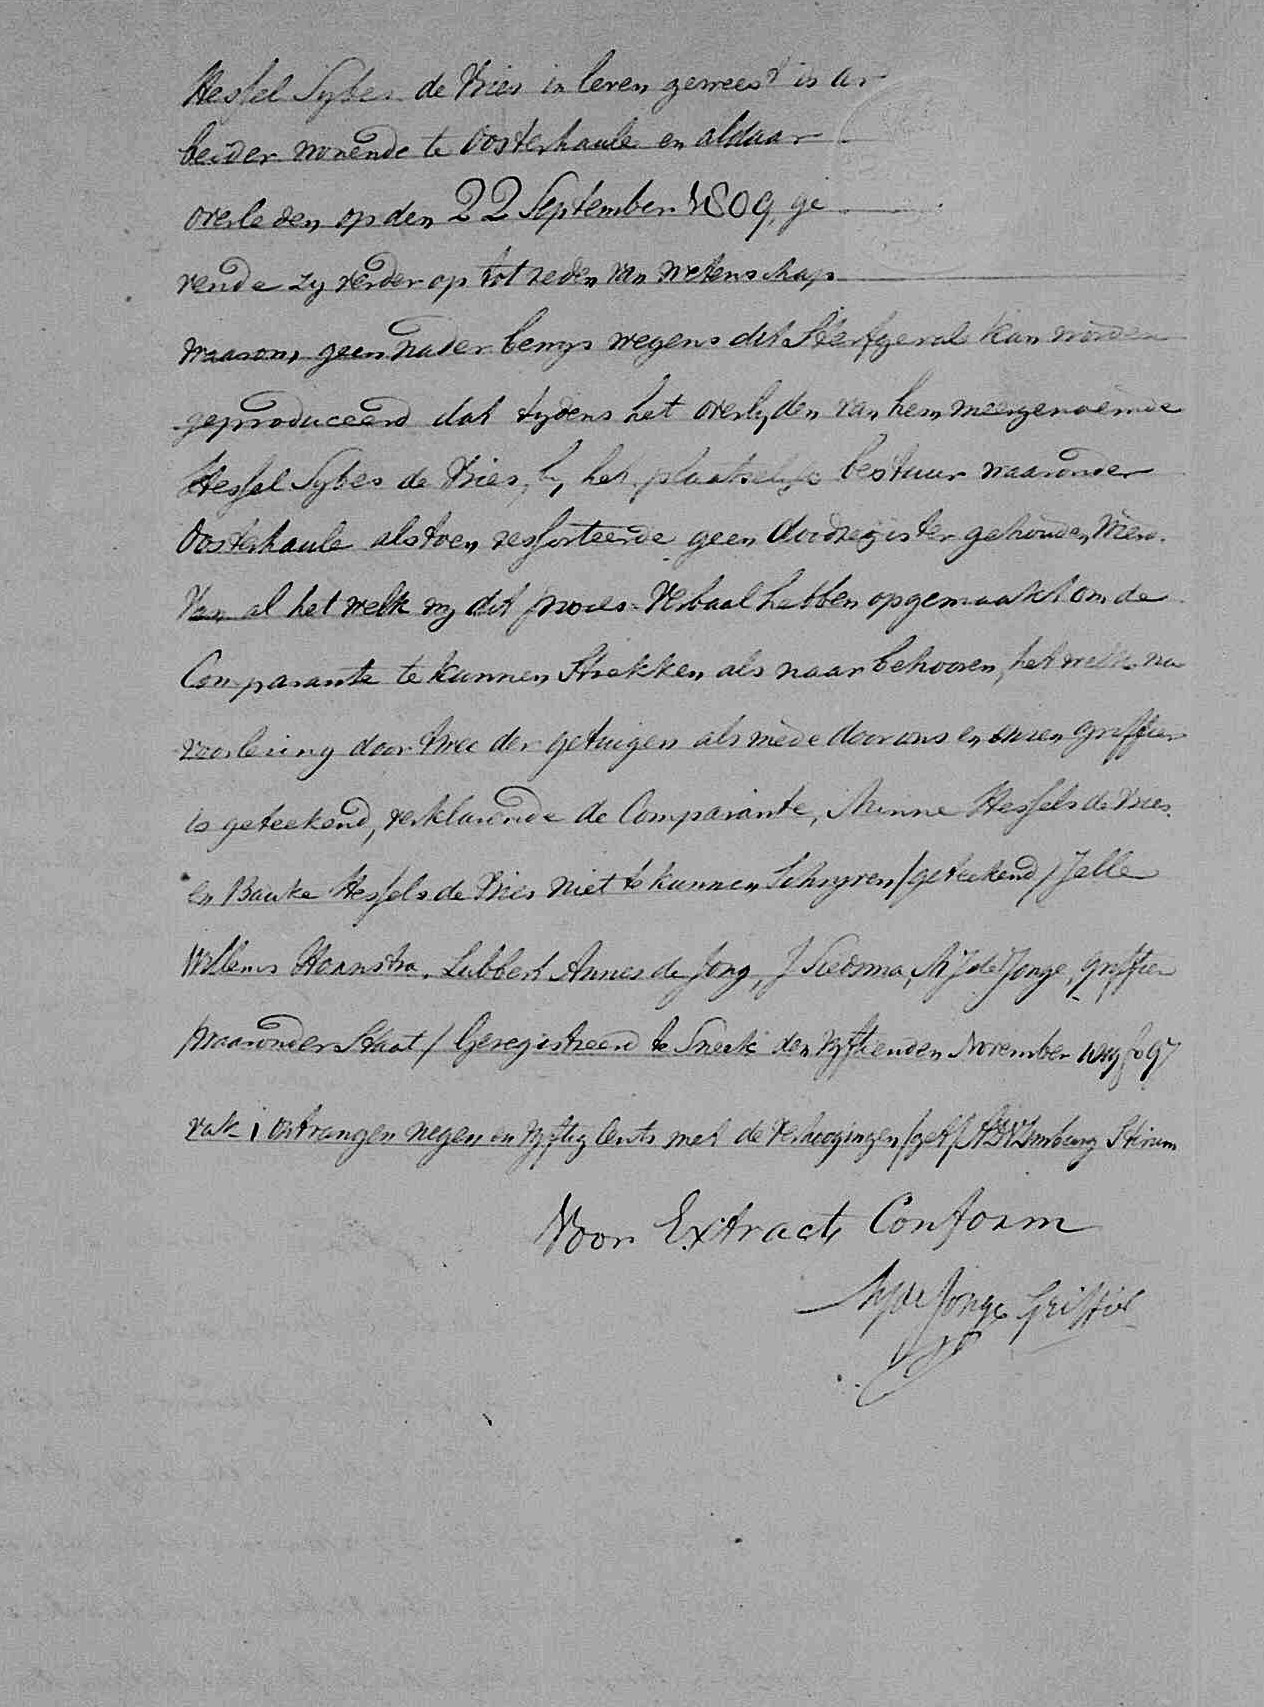 Hessel Sybes de Vries in leven geweest is ar
beider wonende te Oosterhaule en aldaar
overleden op den 22 September 1809, ge
vende zy verder op tot reden van wetenschap
waarom geen nader bewys wegens dit Sterfgeval kan worden
geproduceerd dat tydens het overlyden van hem meergenoemde
Hessel Sybes de Vries, by het plaatselyk bestuur waaronder
Oosterhaule alstoen ressorteerde geen doodregister gehouden wierd.
Van al het welk wy dit proces-Verbaal hebben opgemaakt om de
Comparante te kunnen Strekken als naar behooren, het welk na
voorlezing door twee der getuigen als mede door ons en onzen griffier
is geteekend, verklarende de Comparante, Minne Hessels de Vries
en Bauke Hessels de Vries niet te kunnen Schryven /geteekend/ Jelle
Willems Hoanstra, Lubbert Annes de Jong, J Siedsma, de Jonge, griffier
/waaronder Staat/ Geregistreerd te Sneek den vyftienden November fo 97
vak 1 ontvangen negen en vyftig Cents met de Verhoogingen /get/ Limburg Stirum
Voor Extract Conform
de Jonge Griffier